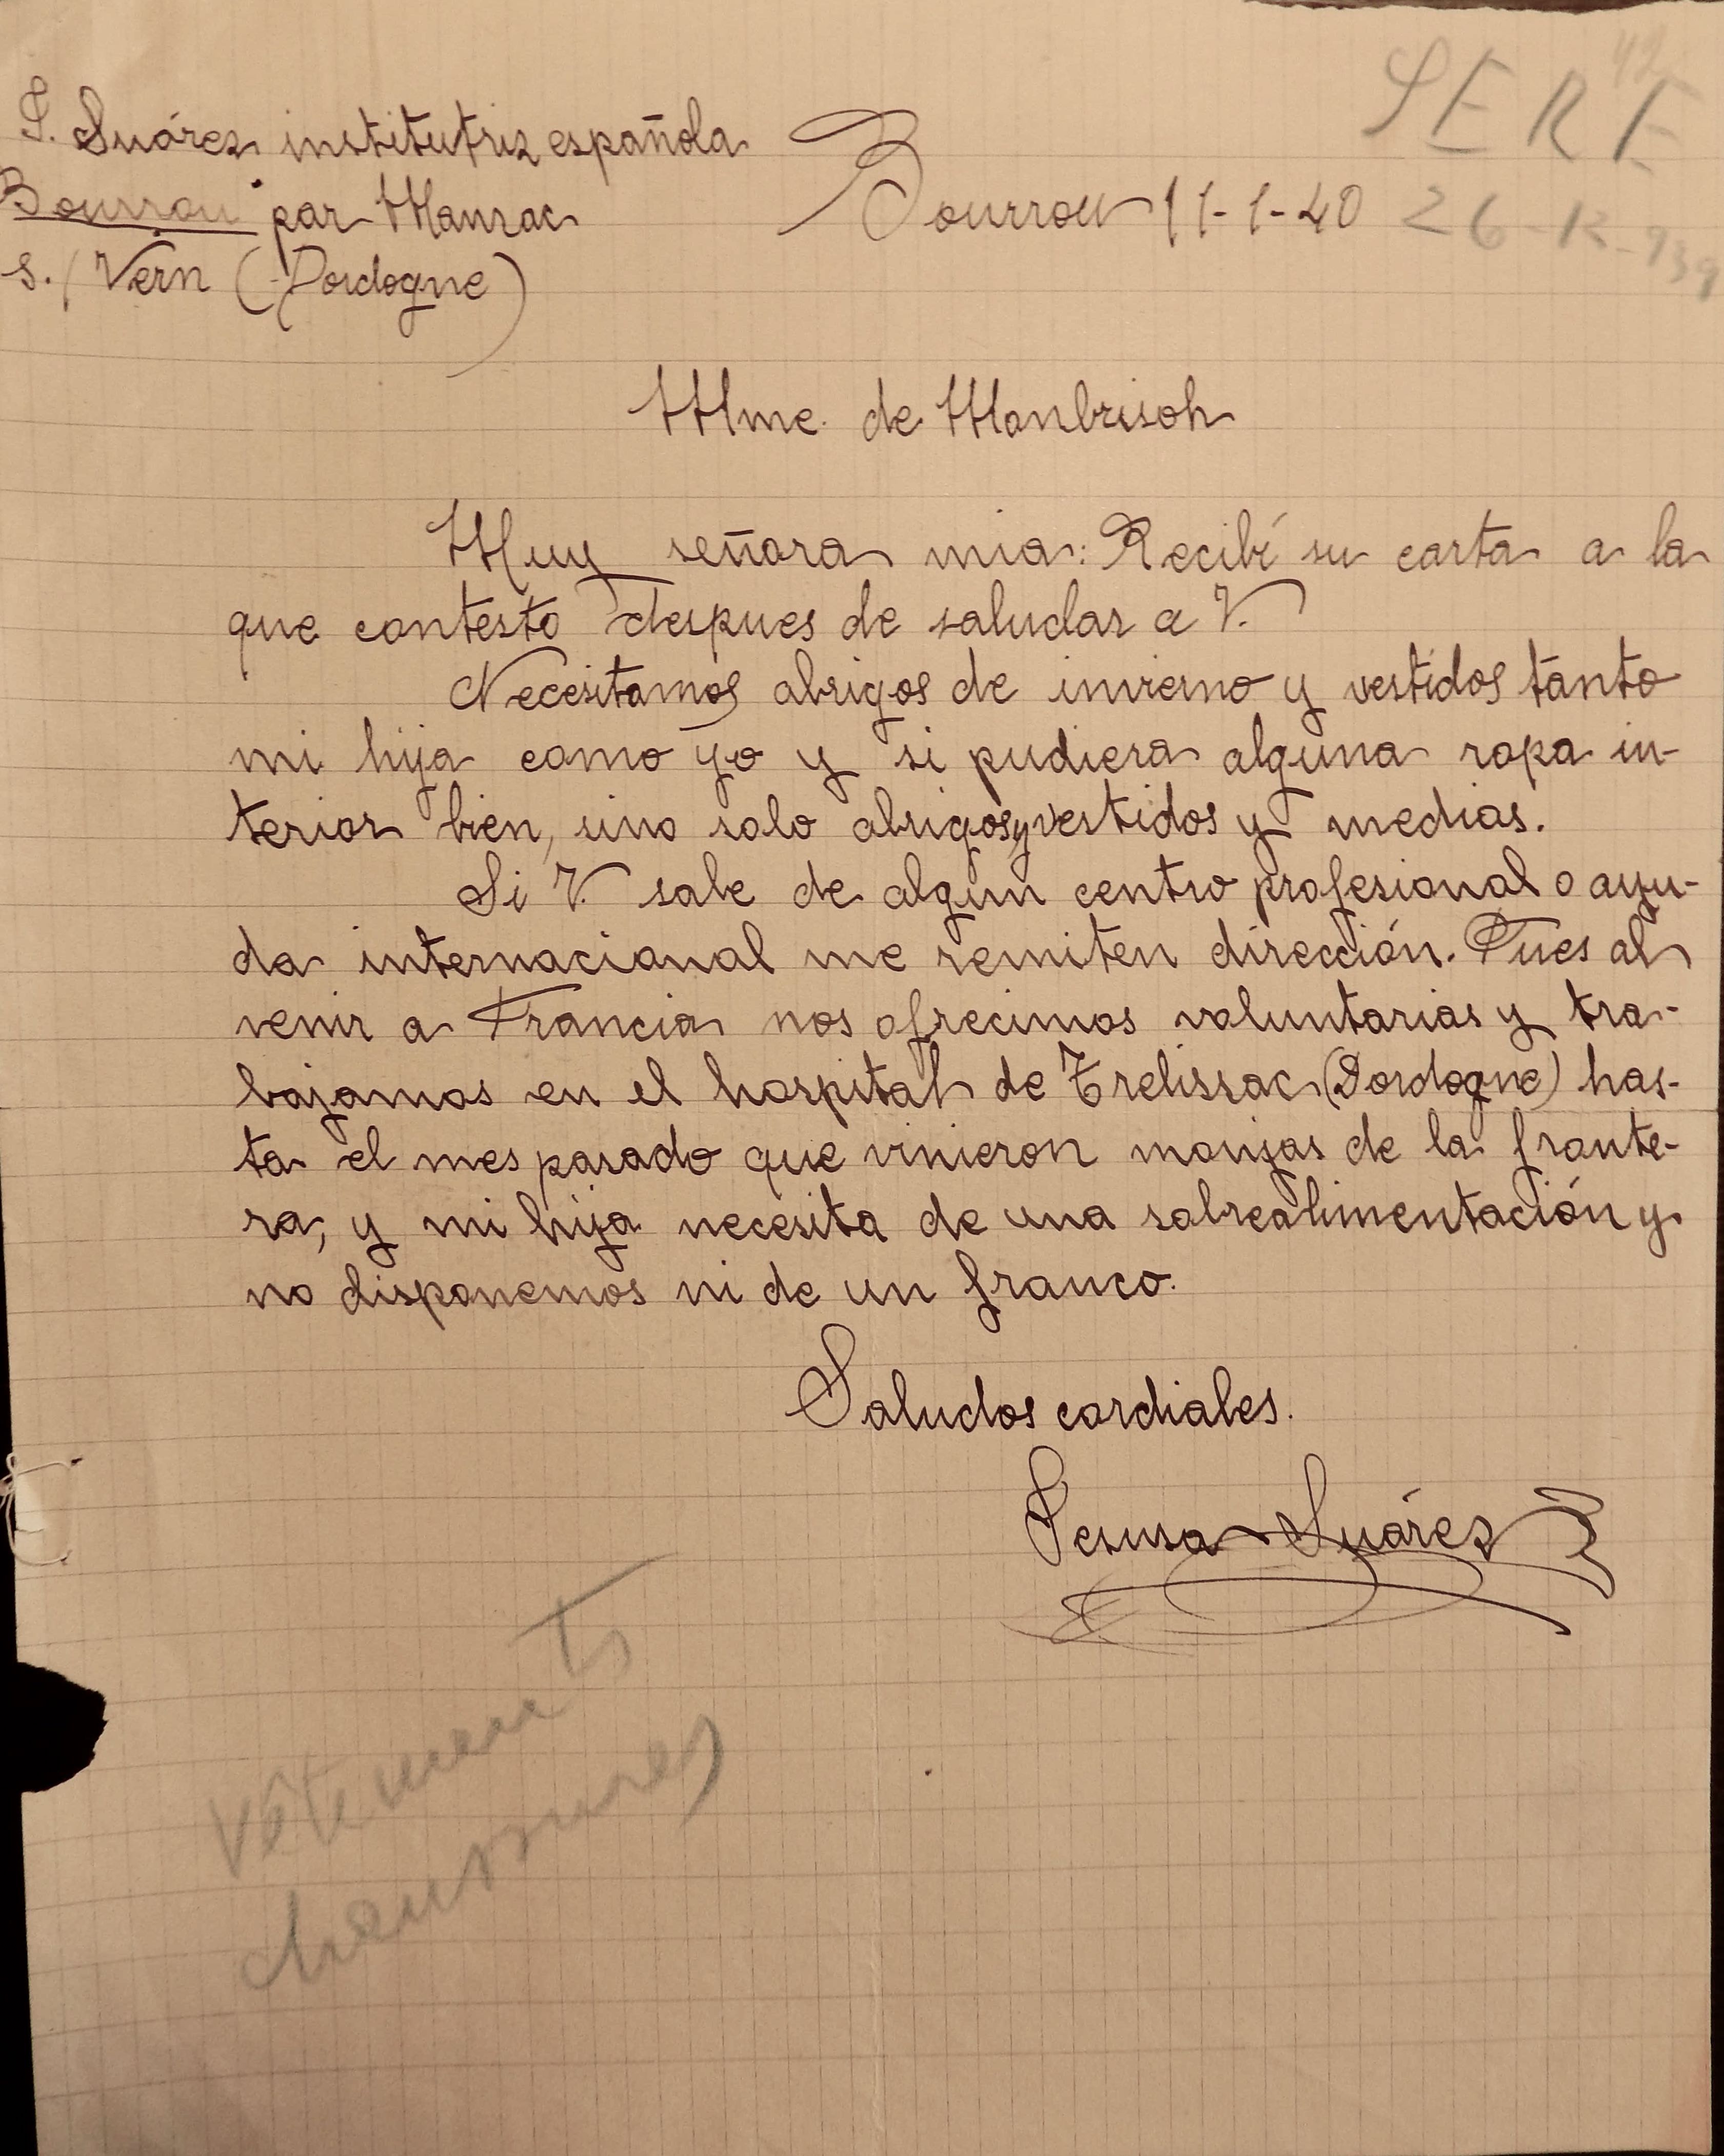 S. Suárez institutriz española
Bourrou par Manzac
s./ Vern (Dordogne)
Bourrou 11-1-40
SERE
26-12-939
Mme. de Monbrisoh
Muy señora mia: Recibí su carta a la
que contesto despues de saludar a V.
Necesitamos abrigos de invierno y vestidos tanto
mi hija como yo y si pudiera alguna ropa in-
terior bien, sino solo abrigos y vestidos y medias.
Si V. sabe de algun centro profesional o ayu-
da internacional me remiten dirección. Pues al
venir a Francia nos ofrecimos voluntarias y tra-
bajamos en el hospital de Trelissac (Dordogne) has-
ta el mes pasado que vinieron monjas de la fronte-
ra, y mi hija necesita de una sobrealimentación y
no disponemos ni de un franco.
Saludos cordiales.
Suárez
Vêtements
chaussures